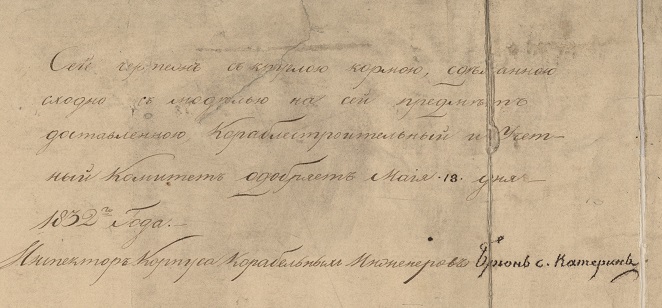 Сей чертежъ съ круглою кормою, сдѣланною
сходно съ моделью на сей предмѣтъ
доставленною Кораблестроительный и Учет-
ный Комитетъ одобряетъ Маія 18. дня
1832го Года.
Инспекторъ Корпуса Корабельнымъ Инженеровъ Брюнъ с. Катеринъ